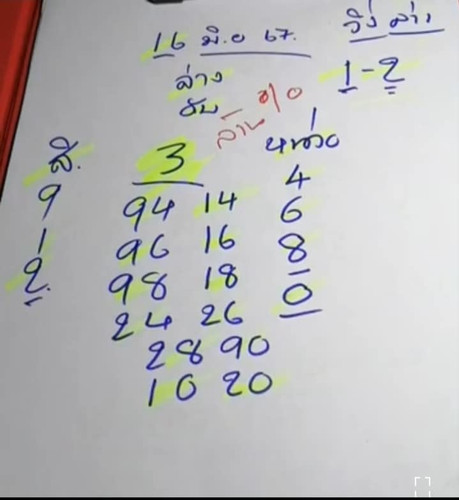 16 มิ.ย 67. วิ่ง ล่าง
ล่าง 1-2
ดับ
ล้าน %
สิ. 3 หน่วย
9 94 14 4
1 96 16 6
2. 98 18 8
24 26 0
28 90
10 20